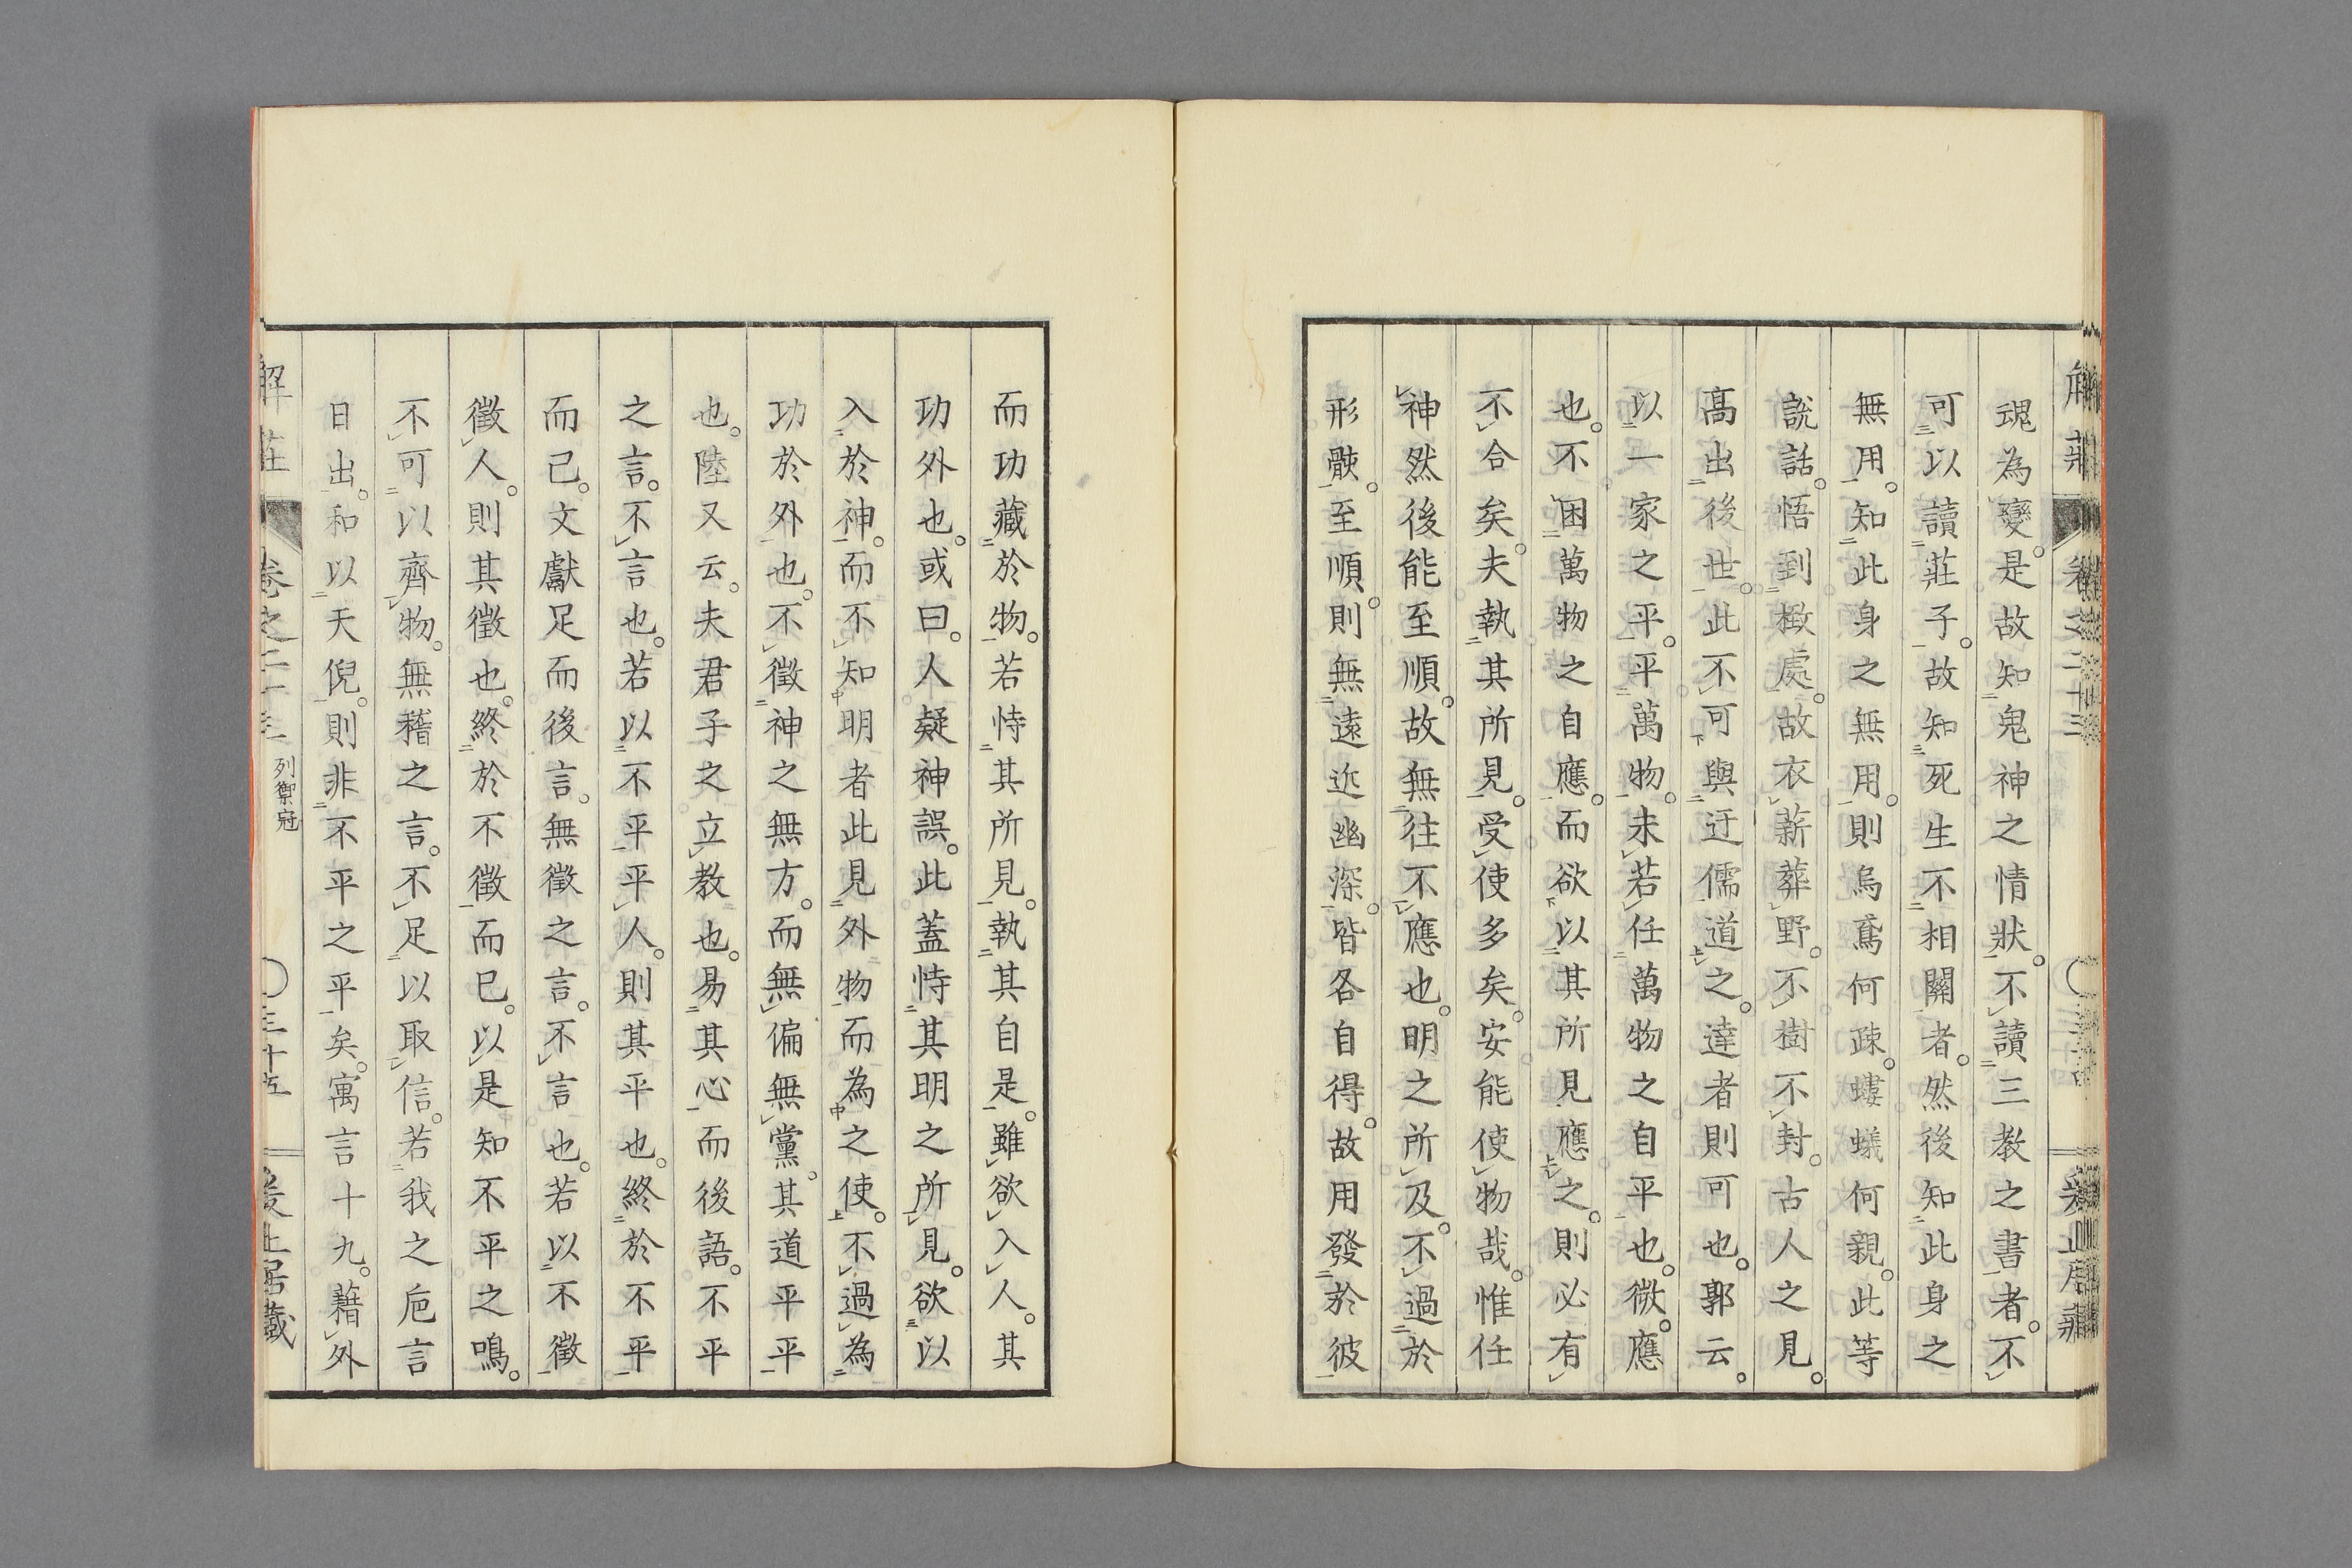 魂為變。是故知鬼神之情狀。不讀三教之書者。不
可以讀莊子。故知死生不相關者。然後知此身之
無用。知此身之無用。則烏鳶何疎。螻蟻何親。此等
說話。悟到極處。故衣薪葬野。不樹不封。古人之見。
高出後世。此不可與迂儒道之。達者則可也。郭云。
以一家之平。平萬物。未若任萬物之自平也。徵應
也。不因萬物之自應。而欲以其所見應之。則必有
不合矣。夫執其所見。受使多矣。安能使物哉。惟任
神然後能至順。故無往不應也。明之所及。不過於
形骸。至順。則無遠近幽深。皆各自得。故用發於彼
而功藏於物。若恃其所見。執其自是。雖欲入人。其
功外也。或曰。人疑神誤。此蓋恃其明之所見。欲以
入於神。而不知明者此見外物而為之使。不過為
功於外也。不徵神之無方。而無偏無黨。其道平平
也。陸又云。夫君子之立教也。易其心而後語。不平
之言。不言也。若以不平平人。則其平也。終於不平
而已。文獻足而後言。無徵之言。不言也。若以不徵
徵人。則其徵也。終於不徵而已。以是知不平之鳴。
不可以齊物。無稽之言。不足以取信。若我之巵言
日出。和以天倪。則非不平之平矣。寓言十九。藉外
解莊 卷之二十三 列禦冦 〇三十五